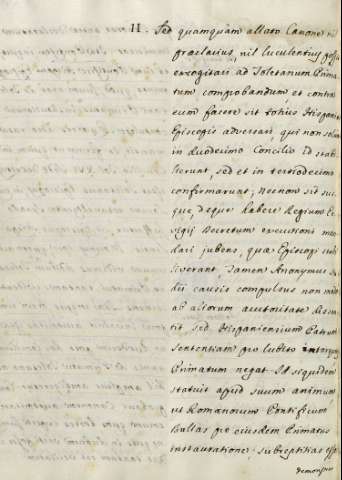 II. Sed quamquam allato Canone ni
praeclarius, nil luculentius
excogitari ad Toletanum Prima
tum comprobandum, et contra
eum facere sit totius Hispaniae
Episcopis adversari, qui non solum
in Duodecimo Concilio id stabi
lierunt, sed et in tertiodecimo
confirmarunt; necnon sit
que, deque habere Regium
vigii Decretum executioni man
dari jubens, quae Episcopi
siverant, tamen Anonymus
causis compulsus non modo
ab aliorum auctoritate dissen
tit, sed Hispaniensium Patrum
sententiam pro lubito
Primatum negat. At siquidem
statuit apud suum animum
ut Romanorum Pontificum
Bullas pro ejusdem Primatus
instauratione subreptitias esse